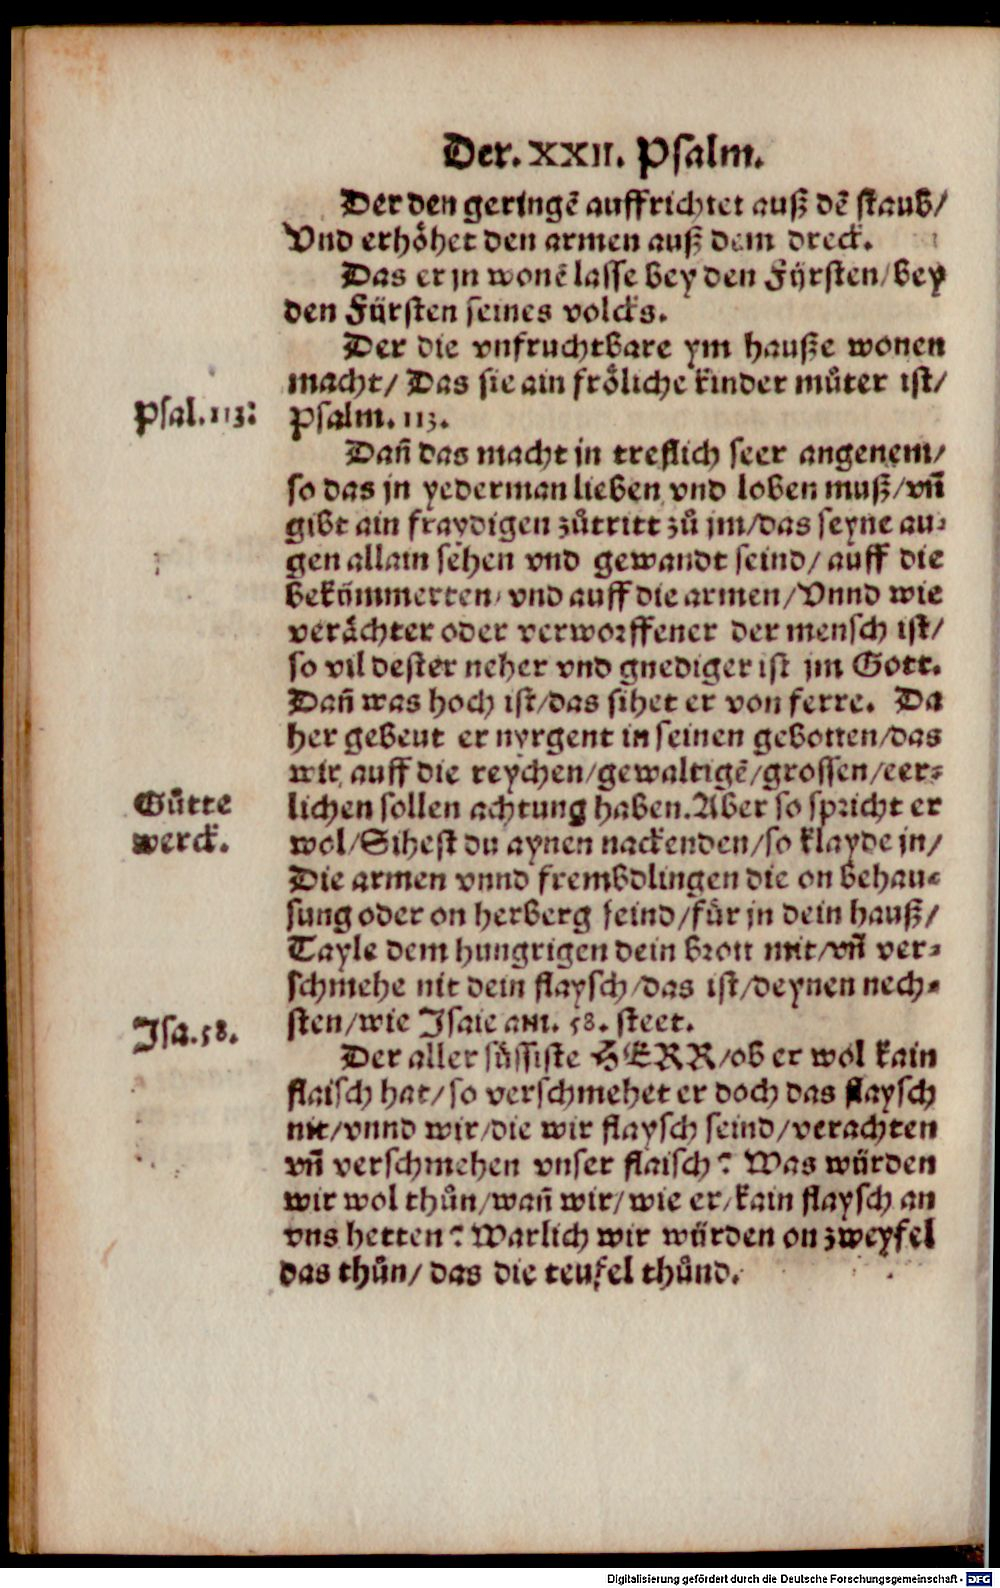 Der. XXII. Psalm.
Der den geringē auffrichtet auß dē staub/
Vnd erhöhet den armen auß dem dreck.
Das er jn wonē lasse bey den Fürsten/bey
den Fürsten seines volcks.
Der die vnfruchtbare ym hauße wonen
macht/ Das sie ain fröliche kinder můter ist/
Psal. 113:
Psalm. 113.
Dañ das macht jn treflich seer angenem/
so das jn yederman lieben vnd loben muß/vñ
gibt ain fraydigen zůtritt zů jm/das seyne au-
gen allain sehen vnd gewandt seind/ auff die
bekümmerten/ vnd auff die armen/Vnnd wie
verächter oder verworffener der mensch ist/
so vil dester neher vnd gnediger ist jm Gott.
Dañ was hoch ist/das sihet er von ferre. Da
her gebeut er nyrgent in seinen gebotten/das
wir auff die reychen/gewaltigē/grossen/eer-
Gůtte
werck.
lichen sollen achtung haben. Aber so spricht er
wol/Sihest du aynen nackenden/so klayde jn/
Die armen vnnd frembdlingen die on behau-
sung oder on herberg seind/für jn dein hauß/
Tayle dem hungrigen dein brott mit/vñ ver-
schmehe nit dein flaysch/das ist/deynen nech-
Jsa. 58.
sten/wie Jsaie am. 58. steet.
Der aller süssiste HERR/ob er wol kain
flaisch hat/so verschmehet er doch das flaysch
nit/vnnd wir/die wir flaysch seind/verachten
vñ verschmehen vnser flaisch? Was würden
wir wol thůn/wañ wir/wie er/kain flaysch an
vns hetten? Warlich wir würden on zweyfel
das thůn/ das die teufel thůnd.
Digitalisierung gefördert durch die Deutsche Forschungsgemeinschaft - DFG